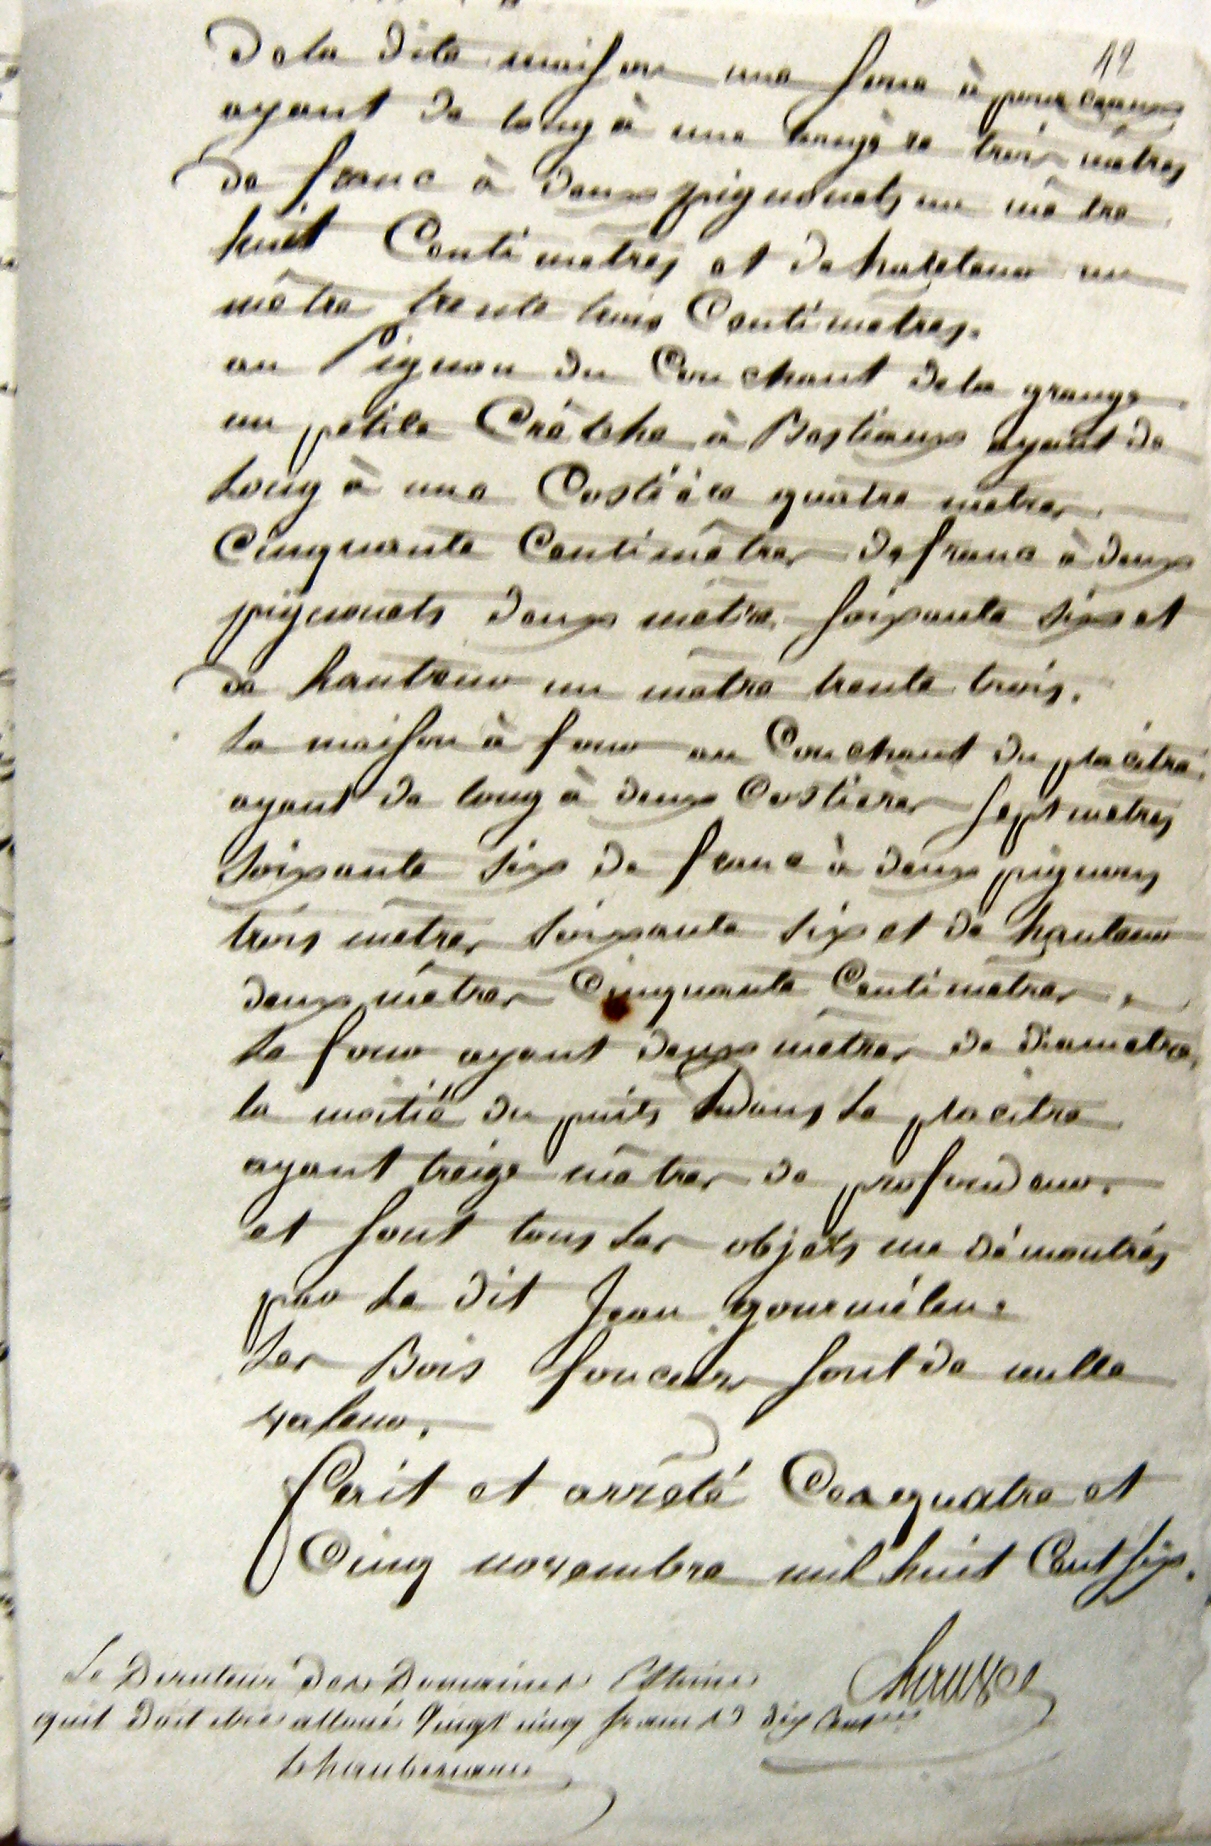 12
De la dite maison une soue à pourceaux
ayant de long à une longère trois mètres
de franc à deux pignonets un mètre
huit Centimètres et de hauteur un
mètre trente trois Centimètres.
au Pignon du Couchant de la grange
un petite Crêche à Bestiaux ayant de
Long à une Costière quatre mètres
Cinquante Centimètres de franc à deux
pignonets deux mètres soixante six et
de hauteur un mètre trente trois.
La maison à four au Couchant du placitre,
ayant de long à deux Costières sept mètres
soixante six de franc à deux pignons
trois mètres soixante six et de hauteur
deux mètres Cinquante Centimètres,
Le four ayant deux mètres de diamètre,
la moitié du puits Dans Le placitre
ayant treize mètres de profondeur.
et sont tous les objets me démontrés
par Le dit Jean gourmélen.
Les Bois fonciers sont de nulle
valeur.
Ecrit et arrêté Ces quatre et
Cinq novembre mil huit Cent six.
Le Directeur des Domaines Estime
quil doit être alloué Vingt cinq francs dix